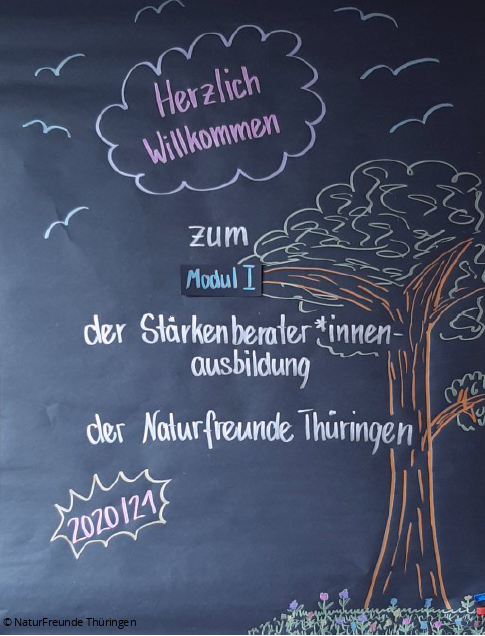 Herzlich
Willkommen
zum
Modul I
der Stärkenberater*innen-
ausbildung
der Naturfreunde Thüringen
2020/21
© NaturFreunde Thüringen